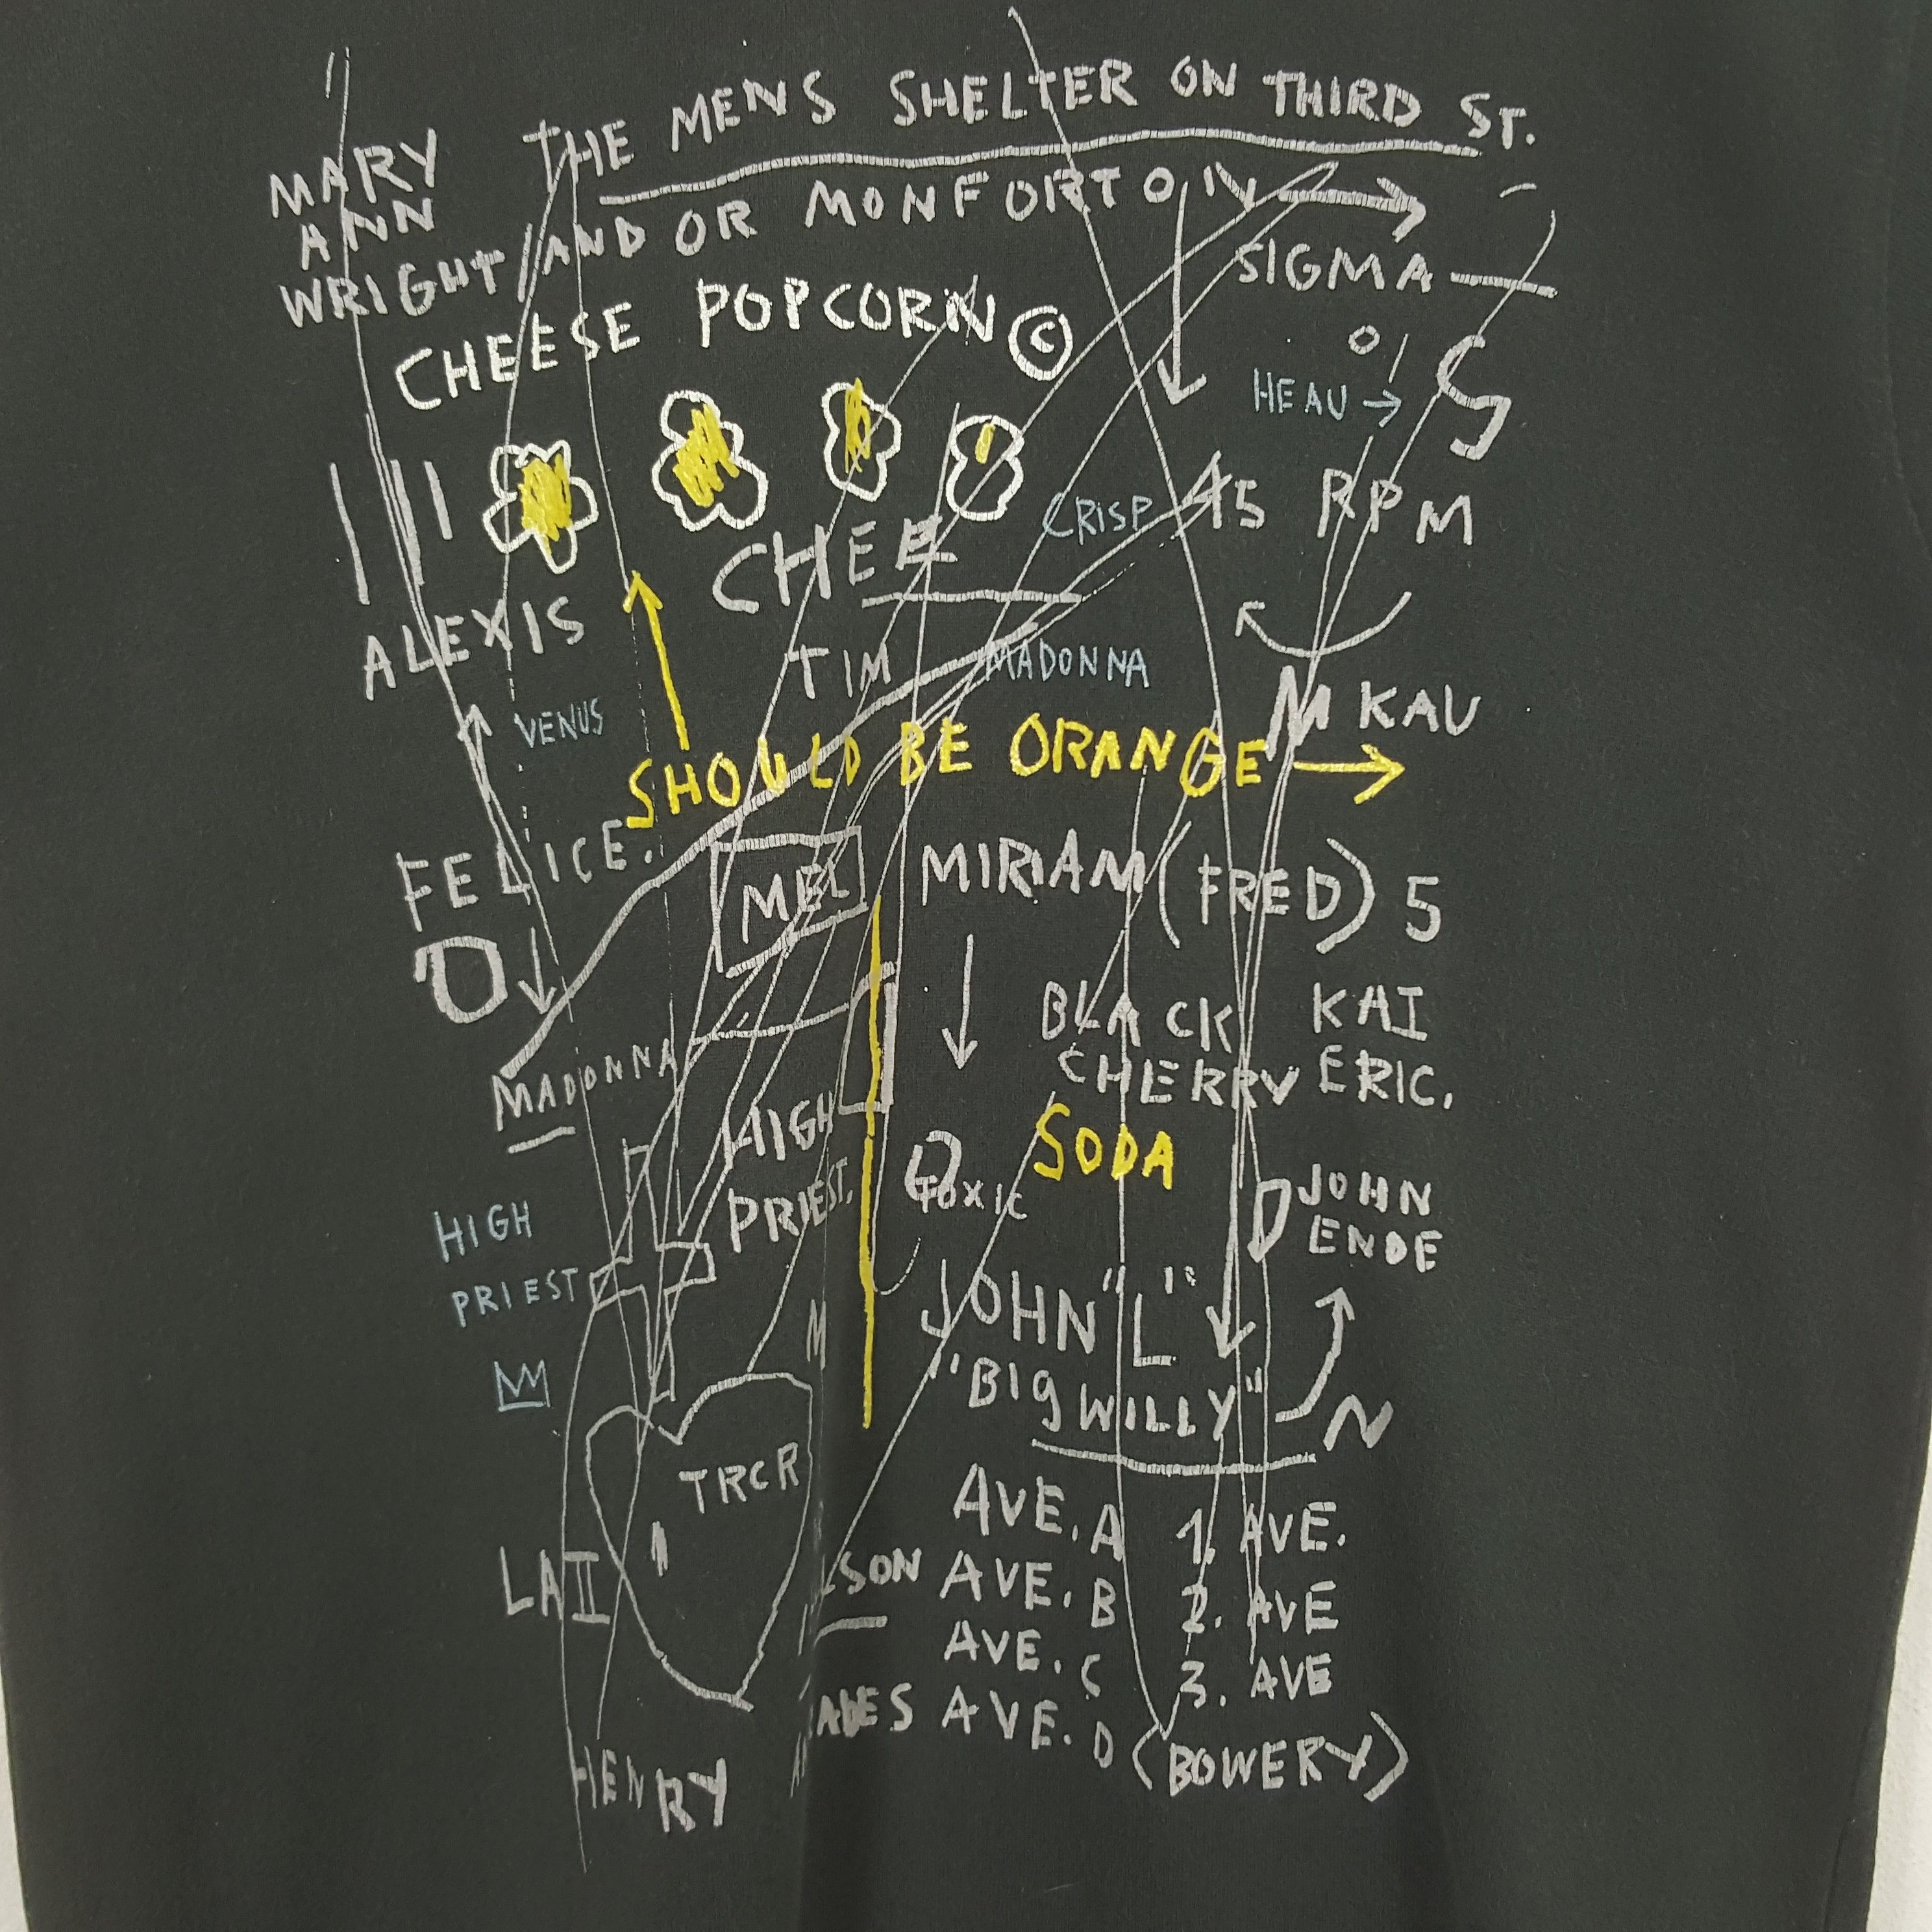 THE MENS SHELTER ON THIRD ST.
MARY
ANN
WRIGHT/AND OR MONFORTON
SIGMA
CHEESE POPCORN ©
HEAU →
S
CRISP
45 RPM
CHEE
ALEXIS
TIM
MADONNA
VENUS
M KAU
SHOULD BE ORANGE →
FELICE.
MEL
MIRIAM (FRED) 5
BLACK
CHERRY
SODA
KAI
ERIC.
MADONNA
HIGH
PRIEST.
TOXIC
HIGH
PRIEST
JOHN
ENDE
JOHN "L"
"BIG WILLY"
N
M
TRCR
LAII
SON
AVE. A
AVE. B
AVE. C
AVE. D
1. AVE.
2. AVE
3. AVE
(BOWERY)
HENRY